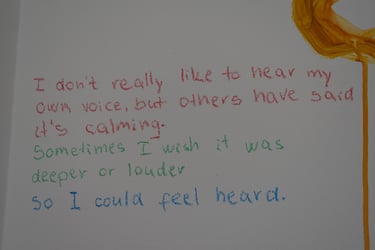 I don't really like to hear my
own voice, but others have said
it's calming.
Sometimes I wish it was
deeper or louder
so I could feel heard.